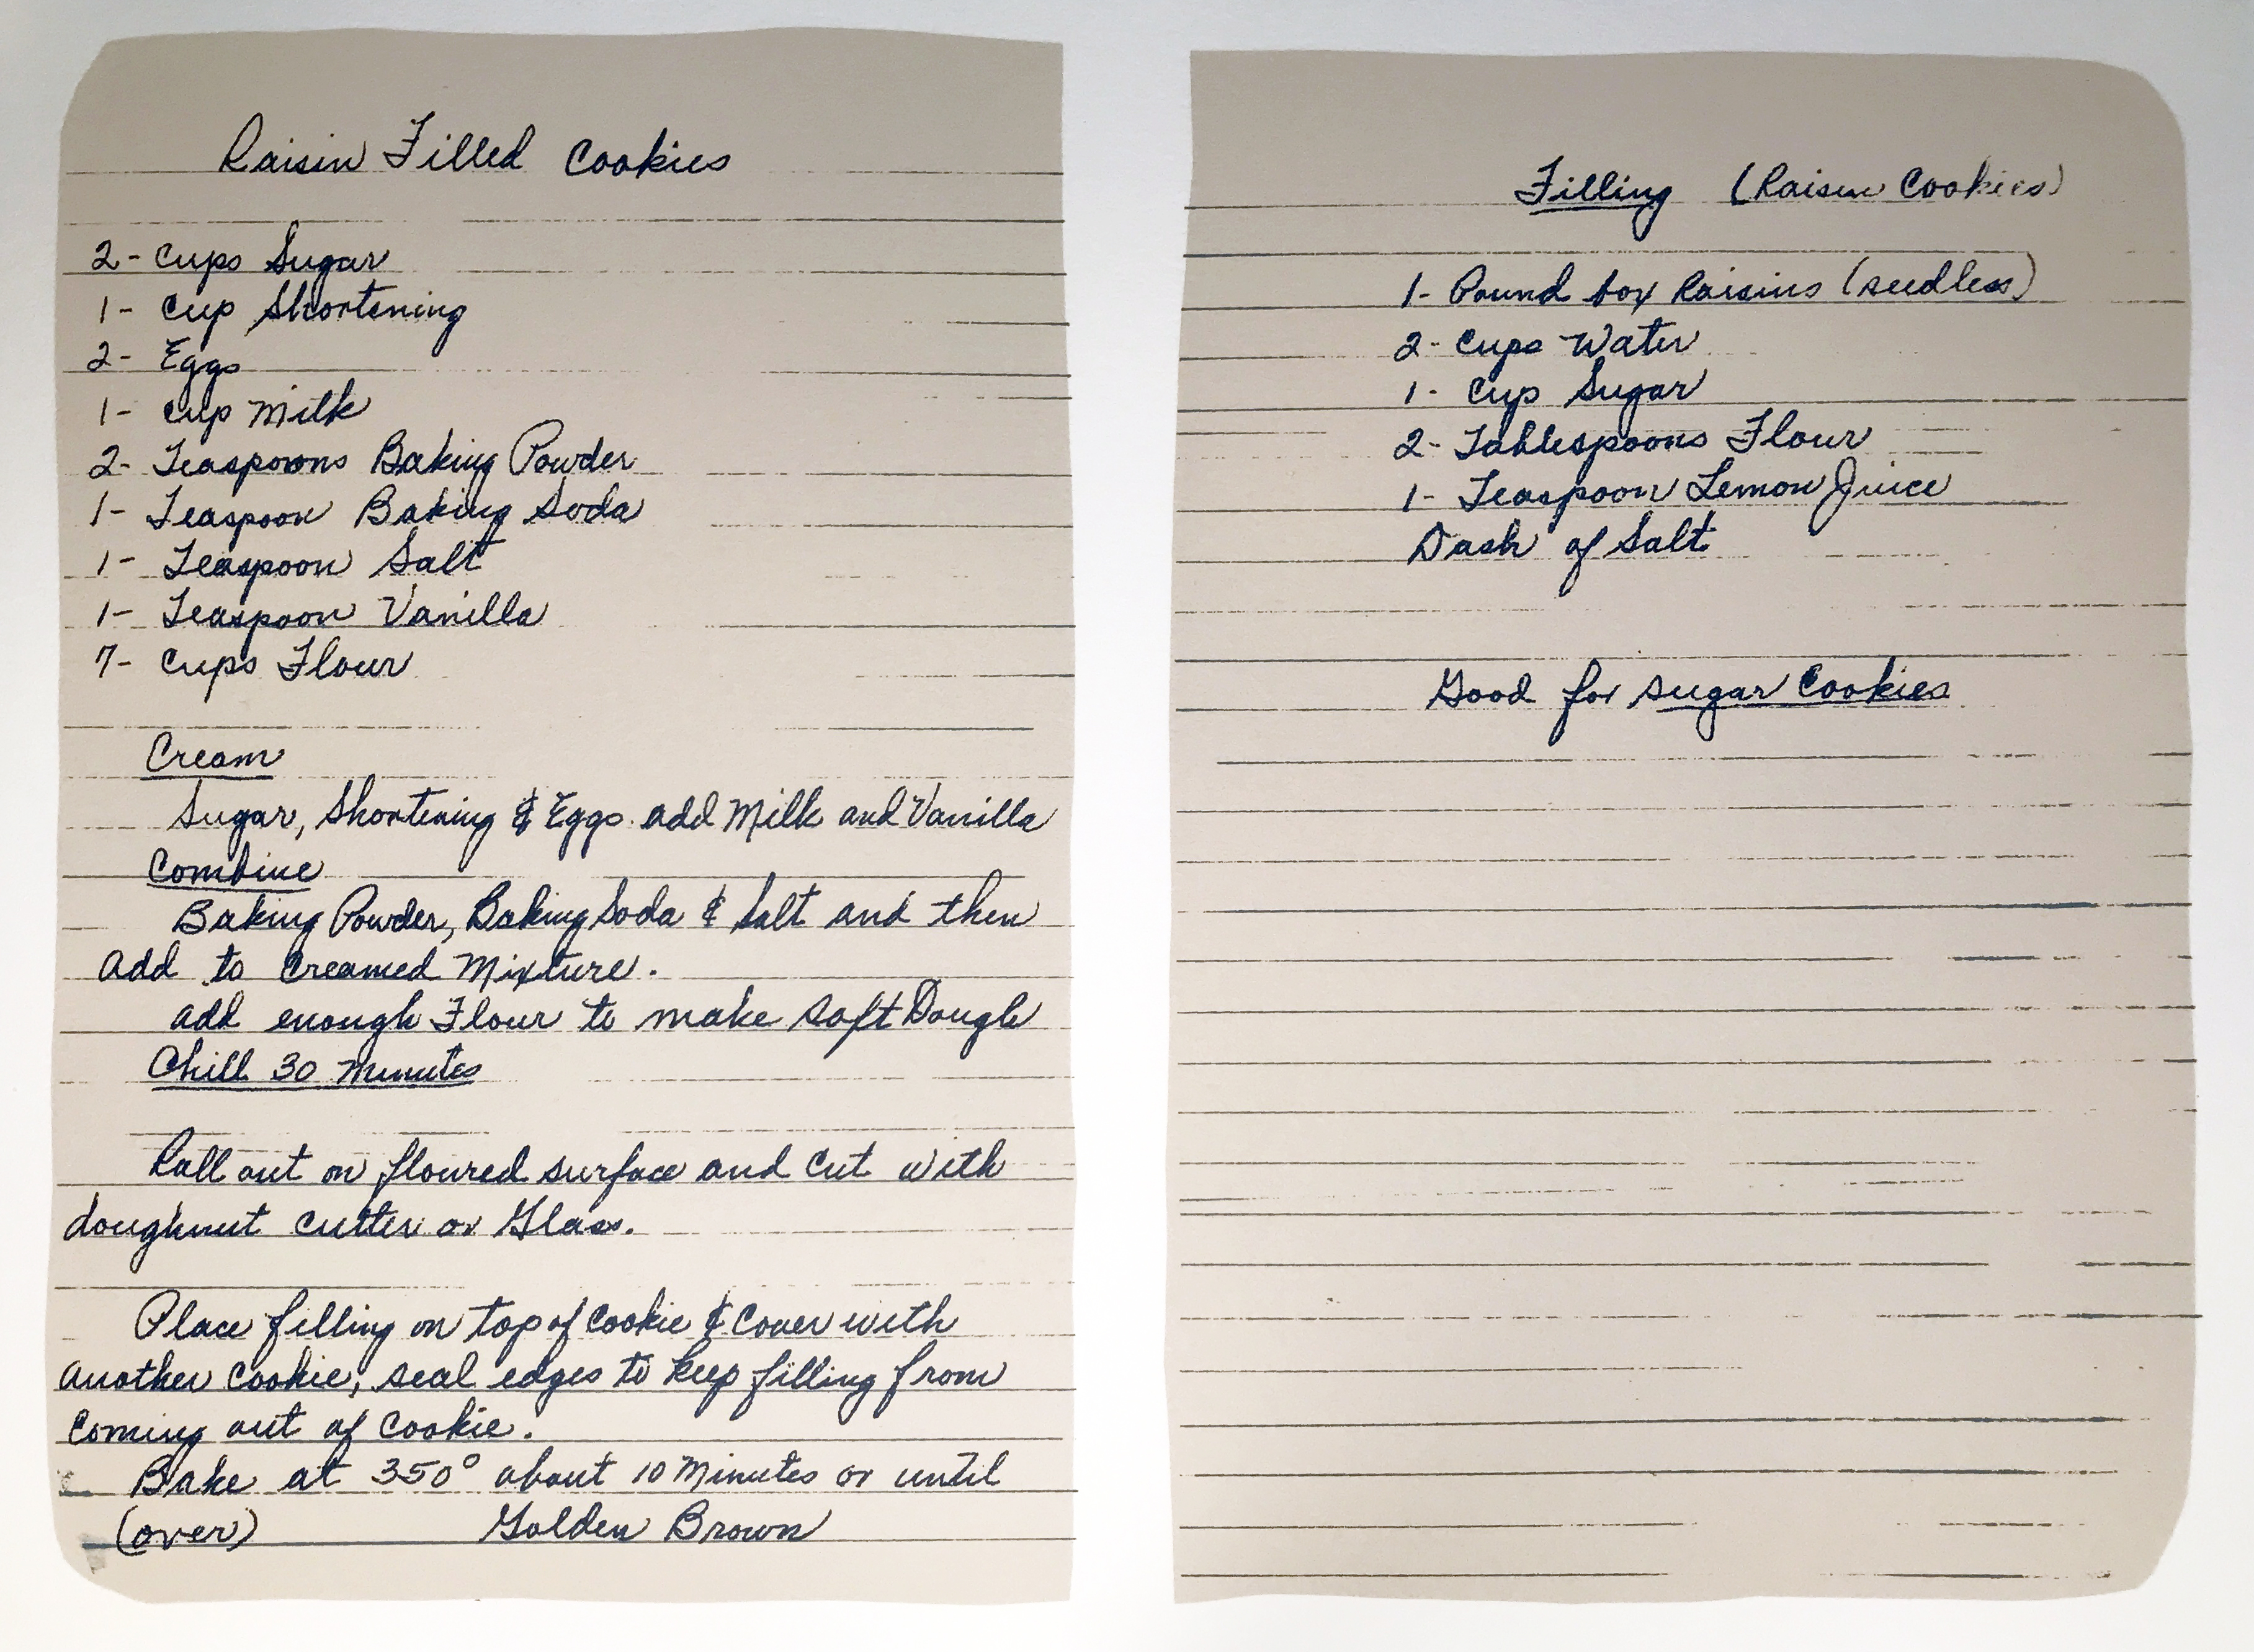 Raisin Filled Cookies
2- Cups Sugar
1- Cup Shortening
2- Eggs
1- Cup Milk
2- Teaspoons Baking Powder
1- Teaspoon Baking Soda
1- Teaspoon Salt
1- Teaspoon Vanilla
7- Cups Flour
Cream
Sugar, Shortening & Eggs add Milk and Vanilla
Combine
Baking Powder, Baking Soda & Salt and then
add to Creamed Mixture.
add enough Flour to make Soft Dough
Chill 30 Minutes
Roll out on floured surface and cut with
doughnut cutter or Glass.
Place filling on top of Cookie & Cover with
another Cookie, seal edges to keep filling from
Coming out of Cookie.
Bake at 350° about 10 Minutes or until
(over) Golden Brown
Filling (Raisin Cookies)
1- Pound box Raisins (seedless)
2- Cups Water
1- Cup Sugar
2- Tablespoons Flour
1- Teaspoon Lemon Juice
Dash of Salt
Good for sugar Cookies